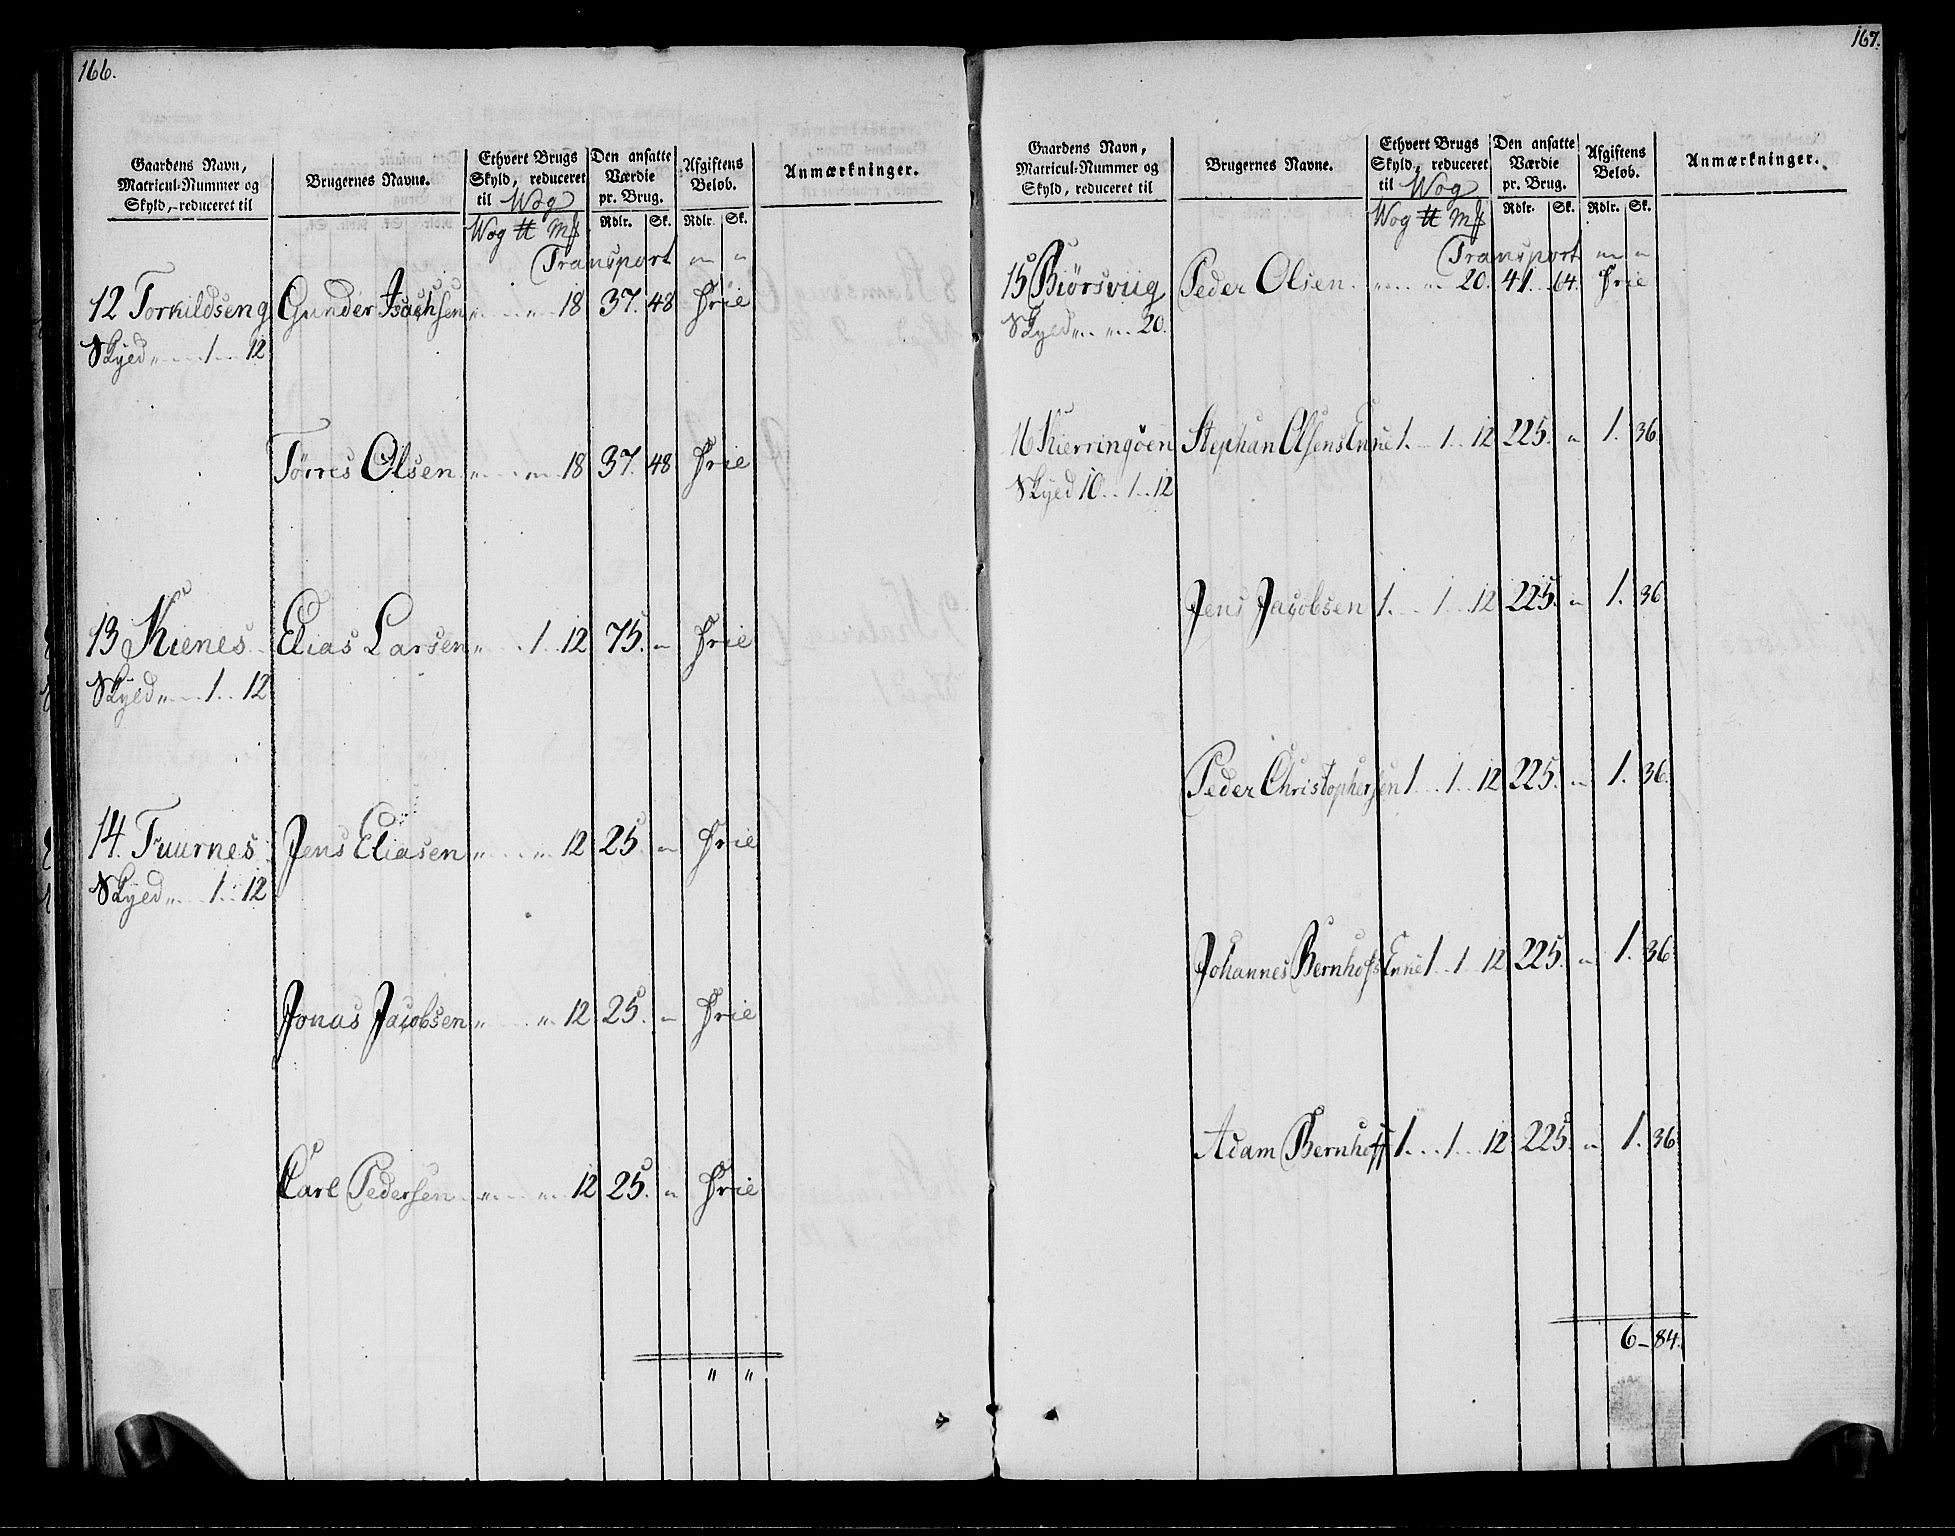 166.
Gaardens Navn, Matricul-Nummer og Skyld, reduceret til
Brugernes Navne.
Ethvert Brugs Skyld, reduceret til Wog
Den ansatte Værdie pr. Brug.
Afgiftens Beløb.
Anmærkninger.
Wog ℔ Mk
Rdlr. Sk. Rdlr. Sk.
Transport " "
12 Torkildseng Gunder Isachsen " " 18 37. 48 Frie
Skyld " 1 12
Tørres Olsen " " 18 37. 48 Frie
13 Kienes Elias Larsen " 1. 12 75. " Frie
Skyld " 1 12
14. Fuurnes Jens Eliasen " " 12 25. " Frie
Skyld " 1 12
Jonas Jacobsen " " 12 25. " Frie
Carl Pedersen " " 12 25. " Frie
" "
167.
Gaardens Navn, Matricul-Nummer og Skyld, reduceret til
Brugernes Navne.
Ethvert Brugs Skyld, reduceret til Wog
Den ansatte Værdie pr. Brug.
Afgiftens Beløb.
Anmærkninger.
Wog ℔ Mk
Rdlr. Sk. Rdlr. Sk.
Transport " "
15 Biörsviig Peder Olsen " " 20. 41. 64. Frie
Skyld " " 20.
16 Kierringöen Stephan Olsens Enke 1. 1 12 225. " 1. 36.
Skyld 10 1 12
Jens Jacobsen 1. 1 12 225. " 1. 36
Peder Christophersen 1 1 12 225. " 1. 36.
Johannes Bernhofs Enke 1 1 12 225. " 1. 36
Adam Bernhoff 1 1 12 225. " 1. 36
6 - 84.